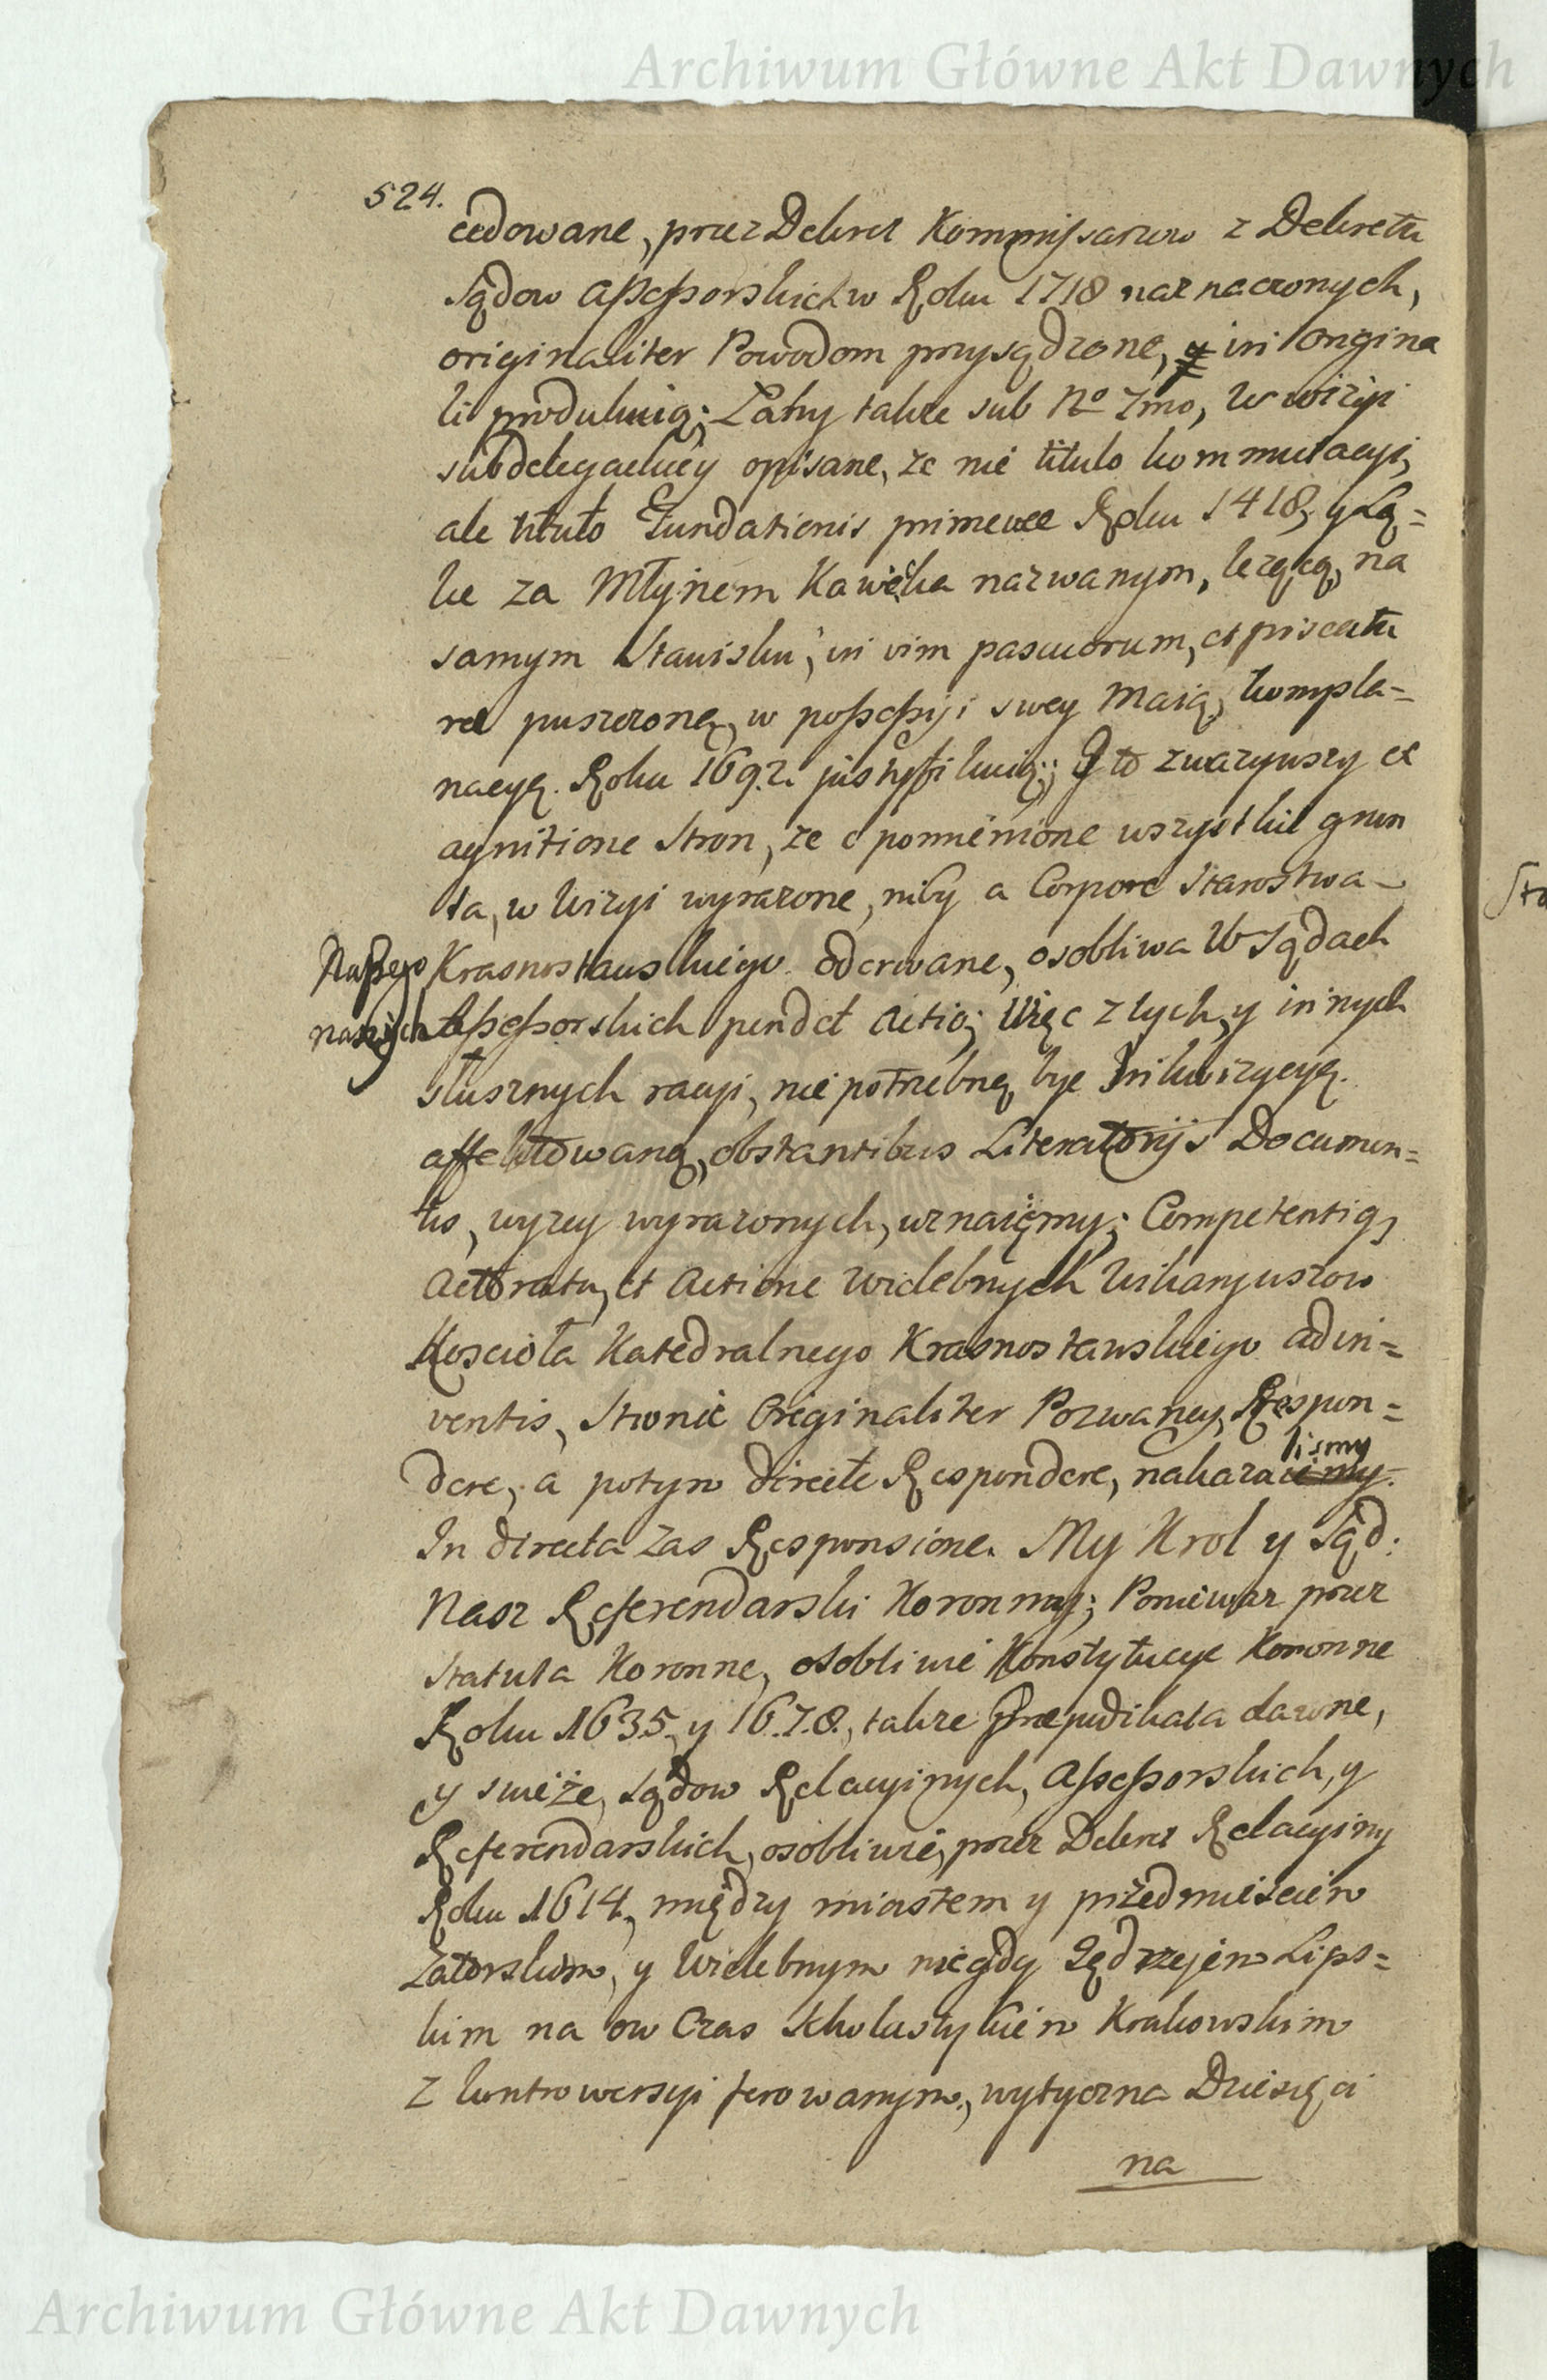 Archiwum Główne Akt Dawnych
524.
cedowane, przez Dekret Kommissarzow z Dekretu
Sądow Assessorskich w Roku 1718 naznaczonych,
originaliter Powodom przysądzone, y in Origina
li produkuią; Łąky także sub No 7mo, w wizyi
subdelegackiey opisane, ze nie titulo kommutacyi,
ale titulo Fundationis primevæ Roku 1418, y Łą=
kę za Młynem Kawęcka nazwanym, lezącą, na
samym Stawisku, in vim pascuorum, et piscatu
ræ puszczoną, w possessyi swey maią, kompla=
nacyą Roku 1692. justyfikuią; Y to zwazywszy ex
agnitione Stron, ze o pomienione wszystkie grun
ta, w wizyi wyrazone, niby a Corpore Starostwa
Naszego Krasnostawskiego oderwane, osobliwa w Sądach
naszych Assessorskich pendet Actio; Więc z tych, y innych
słusznych racyi, nie potrzebną byc Inkwizycyą
affektowaną, obstantibus Literatorijs Documen=
tis, wyzey wyrazonych, uznaięmy; Competentią,
Actoratu, et Actione Wielebnych Wikaryuszow
Kosciola Katedralnego Krasnostawskiego adin=
ventis, Stronie Originaliter Pozwaney, Respon=
dere, a potym directe Respondere, nakaza
lismy
In directa zas Responsione. My Krol y Sąd
Nasz Referendarski Koronny; Poniewaz przez
Statuta Koronne, osobliwie Konstytucye Koronne
Roku 1635, y 1678., także Præjudikata dawne,
y swieże, Sądow Relacyinych, Assessorskich, y
Referendarskich, osobliwie, przez Dekret Relacyiny
Roku 1614, między miastem y przedmiesciem
Zatorskim, y Wielebnym niegdy Jędrzejem Lips=
kim na ow Czas Scholastykiem Krakowskim
z kontrowersyi ferowanym, wytyczna Dziesięci
na
Archiwum Główne Akt Dawnych